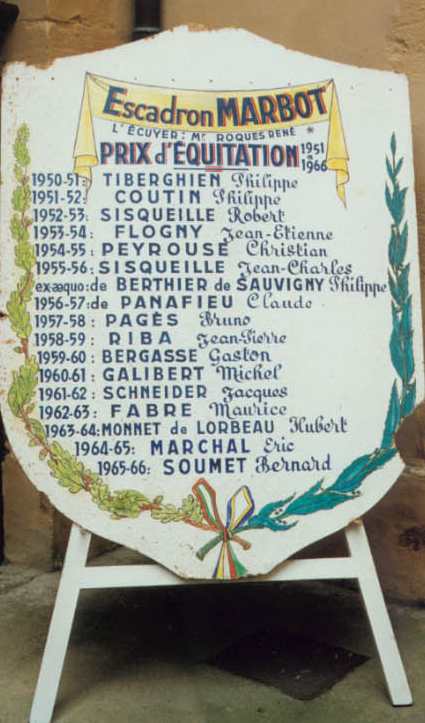 Escadron MARBOT
L'ÉCUYER: Mr ROQUES RENÉ *
PRIX d'ÉQUITATION 1951 à 1966
1950-51: TIBERGHIEN Philippe
1951-52: COUTIN Philippe
1952-53: SISQUEILLE Robert
1953-54: FLOGNY Jean-Etienne
1954-55: PEYROUSE Christian
1955-56: SISQUEILLE Jean-Charles
ex-æquo: de BERTHIER de SAUVIGNY Philippe
1956-57: de PANAFIEU Claude
1957-58: PAGÈS Bruno
1958-59: RIBA Jean-Pierre
1959-60: BERGASSE Gaston
1960-61: GALIBERT Michel
1961-62: SCHNEIDER Jacques
1962-63: FABRE Maurice
1963-64: MONNET de LORBEAU Hubert
1964-65: MARCHAL Eric
1965-66: SOUMET Bernard